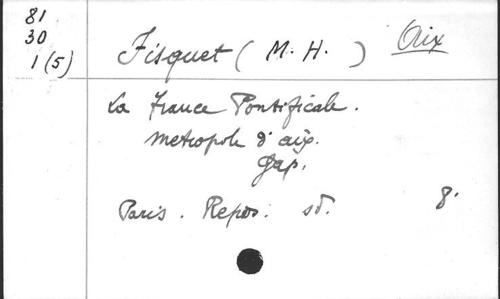 81
30
1 (5)
Fisquet ( M. H. ) Aix
La France Pontificale.
metropole d'aix.
Gap.
Paris. Repos: sd. 8°